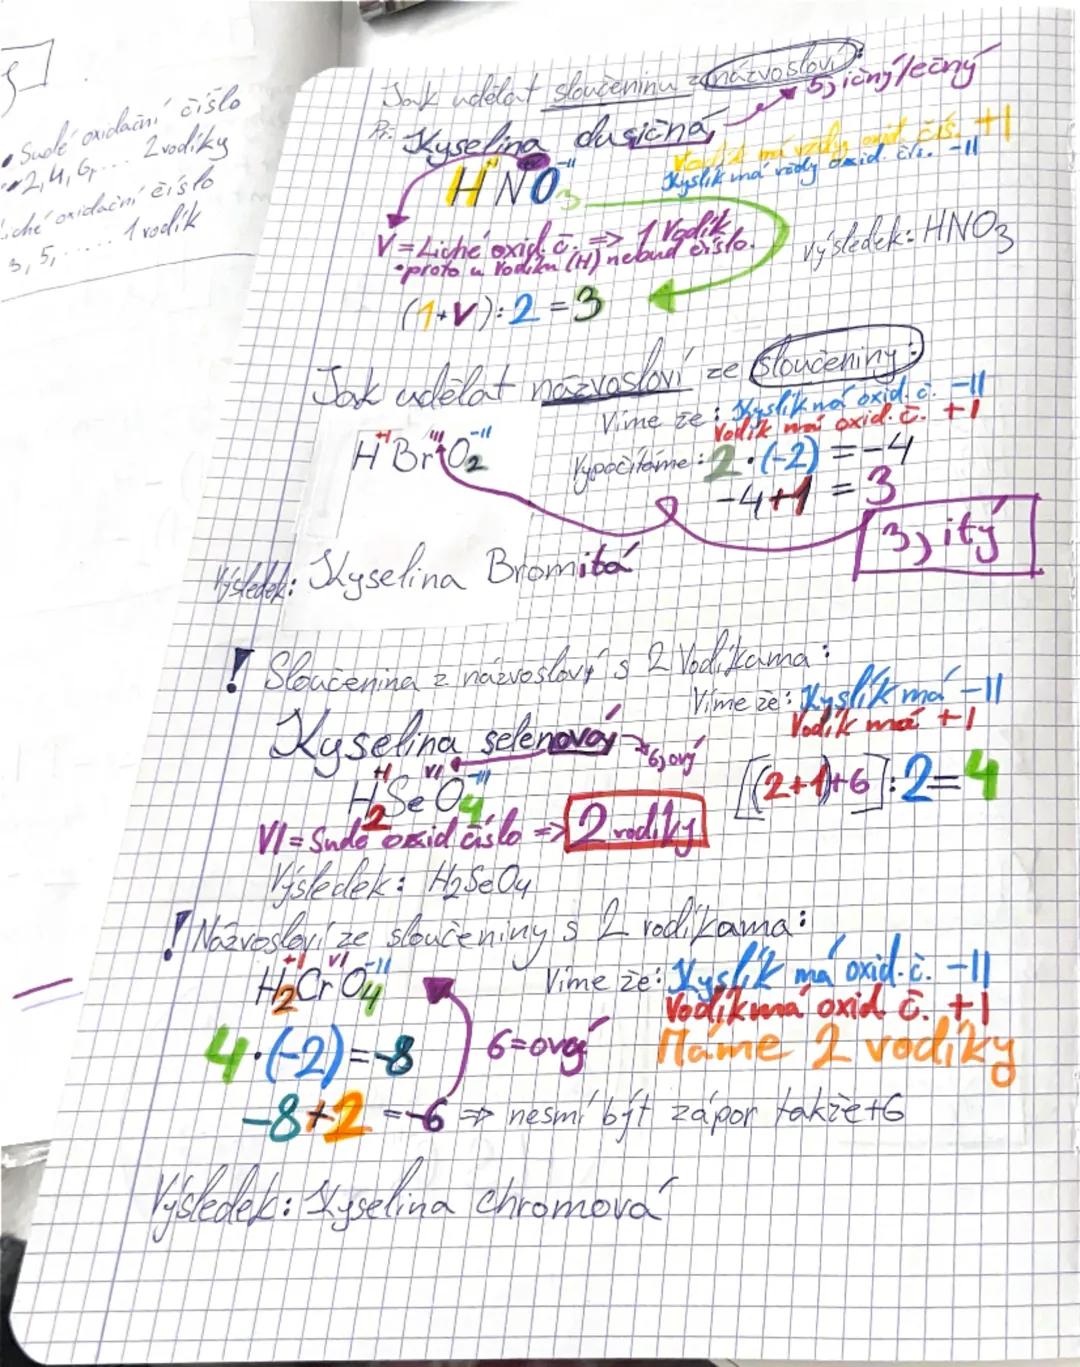 • Sudé oxidační číslo
• 2,4,6,... 2 vodíky
Liché oxidační číslo
3,5,..... 1 vodík
Jak udělat sloučeninu z názvosloví:
Př: Kyselina dusičná, 5, ičný/ečný
Vodík má vždy oxid. čís. +I
Kyslík má vždy oxid. čís. -II
HNO3 -II
V = Liché oxid. č. => 1 Vodík
• proto u Vodíku (H) nebud číslo.
Výsledek: HNO3
(1+V):2=3
Jak udělat názvosloví ze sloučeniny:
Víme že: Kyslík má oxid. č. -II
Vodík má oxid. č. +I
+I III -II
HBrO2
Vypočítáme: 2·(-2) = -4
-4+1 = 3
3, itý
Výsledek: Kyselina Bromitá
! Sloučenina z názvoslový s 2 Vodíkama:
Víme že: Kyslík má -II
Vodík má +I
Kyselina selenová 6, ový
+I VI -II
H2SeO4
[(2+1)+6]:2=4
VI = Sudé oxid číslo => 2 vodíky
Výsledek: H2SeO4
! Názvosloví ze sloučeniny s 2 vodíkama:
+I VI -II
H2CrO4
Víme že: Kyslík má oxid. č. -II
Vodík má oxid. č. +I
Máme 2 vodíky
4·(-2)=-8
6=ový
-8+2 = -6 => nesmí být zápor takže +6
Výsledek: Kyselina chromová